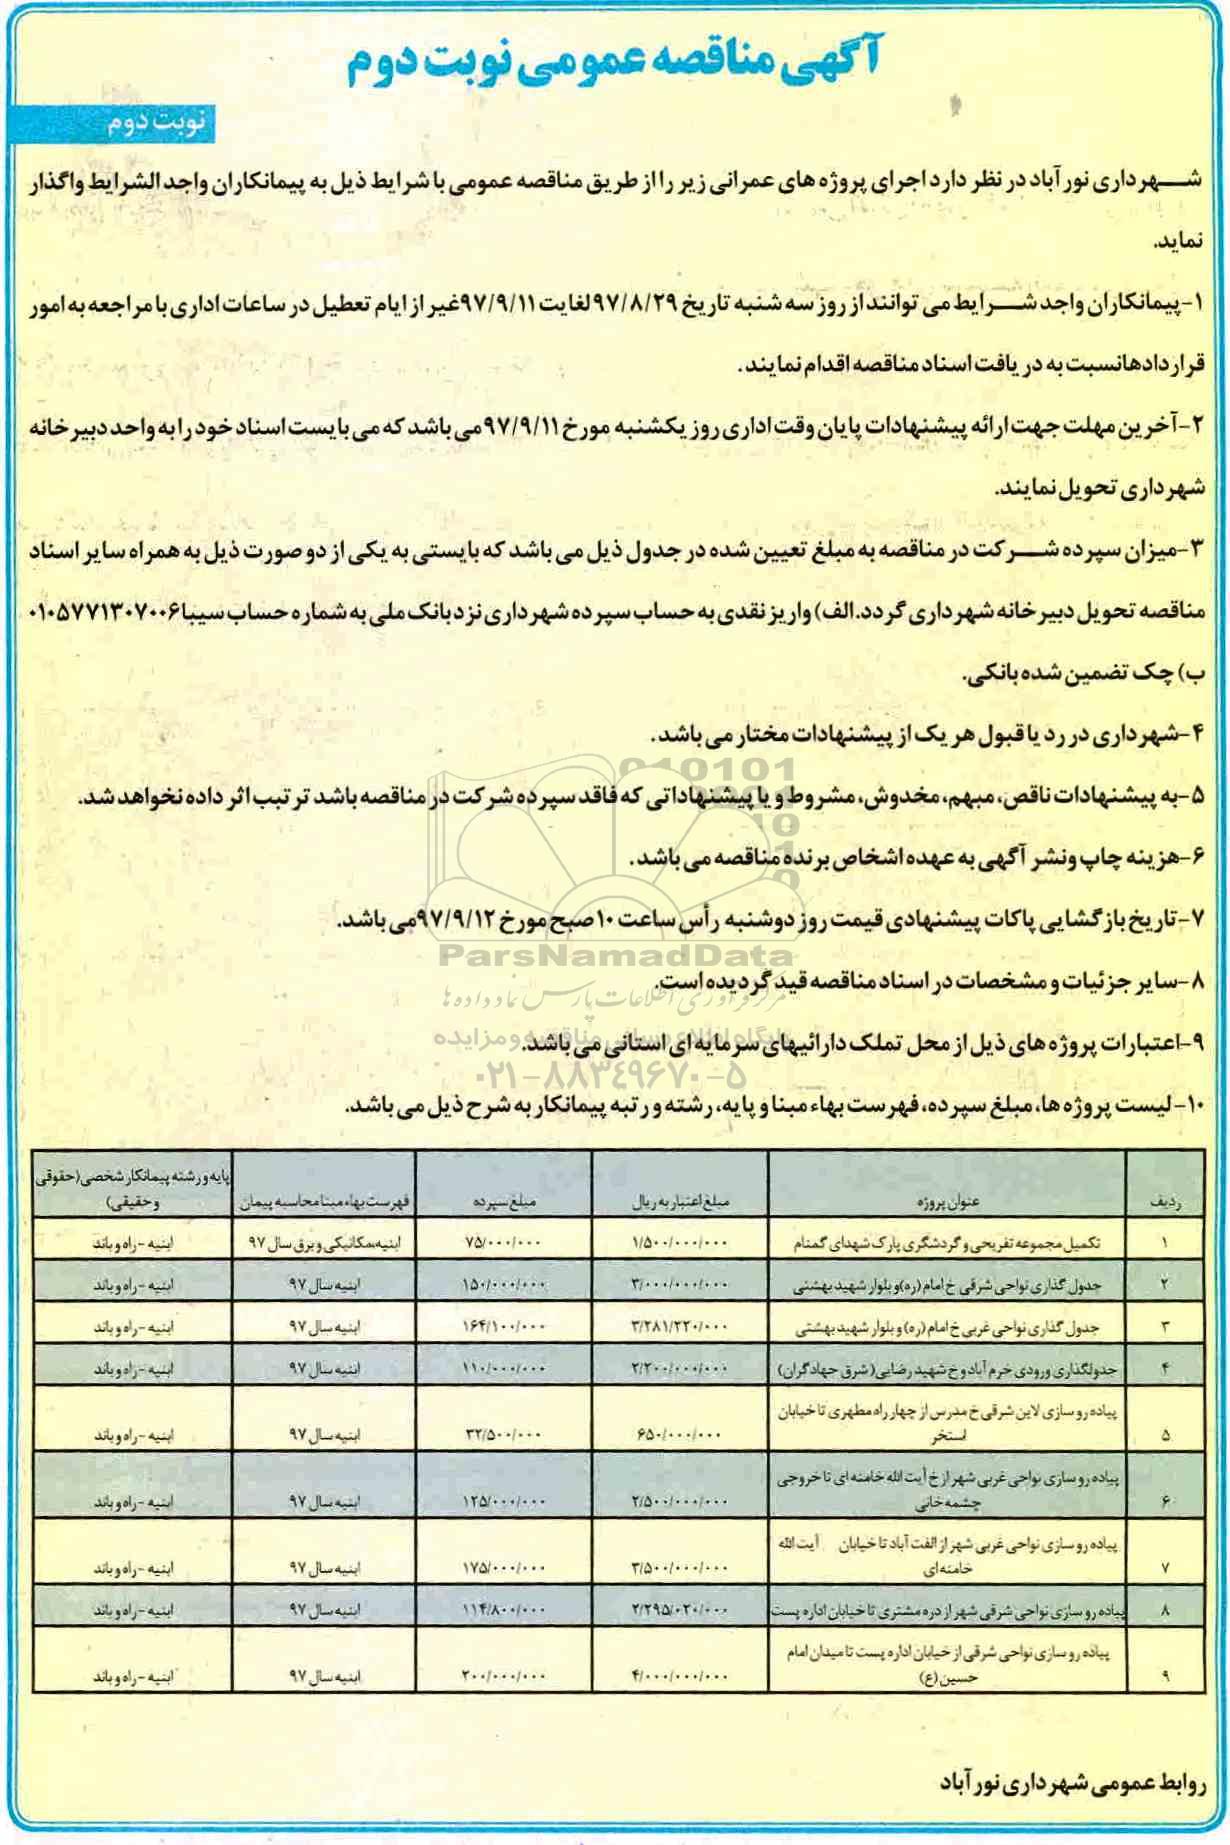 آگهی مناقصه عمومی نوبت دوم
نوبت دوم
شهرداری نورآباد در نظر دارد اجرای پروژه های عمرانی زیر را از طریق مناقصه عمومی با شرایط ذیل به پیمانکاران واجد الشرایط واگذار
نماید.
۱-پیمانکاران واجد شرایط می توانند از روز سه شنبه تاریخ ۹۷/۸/۲۹ لغایت ۹۷/۹/۱۱ غیر از ایام تعطیل در ساعات اداری با مراجعه به امور
قراردادها نسبت به دریافت اسناد مناقصه اقدام نمایند.
۲-آخرین مهلت جهت ارائه پیشنهادات پایان وقت اداری روز یکشنبه مورخ ۹۷/۹/۱۱ می باشد که می بایست اسناد خود را به واحد دبیرخانه
شهرداری تحویل نمایند.
۳-میزان سپرده شرکت در مناقصه به مبلغ تعیین شده در جدول ذیل می باشد که بایستی به یکی از دو صورت ذیل به همراه سایر اسناد
مناقصه تحویل دبیرخانه شهرداری گردد. الف) واریز نقدی به حساب سپرده شهرداری نزد بانک ملی به شماره حساب سیبا ۰۱۰۵۷۷۱۳۰۷۰۰۶
ب) چک تضمین شده بانکی.
۴-شهرداری در رد یا قبول هر یک از پیشنهادات مختار می باشد.
۵-به پیشنهادات ناقص، مبهم، مخدوش، مشروط و یا پیشنهاداتی که فاقد سپرده شرکت در مناقصه باشد ترتیب اثر داده نخواهد شد.
۶-هزینه چاپ ونشر آگهی به عهده اشخاص برنده مناقصه می باشد.
۷-تاریخ بازگشایی پاکات پیشنهادی قیمت روز دوشنبه رأس ساعت ۱۰ صبح مورخ ۹۷/۹/۱۲ می باشد.
ParsNamadData
۸-سایر جزئیات و مشخصات در اسناد مناقصه قید گردیده است.
مرکز فرآوری اطلاعات پارس نماد داده ها
۹-اعتبارات پروژه های ذیل از محل تملک دارائیهای سرمایه ای استانی می باشد.
پایگاه اطلاع رسانی مناقصه و مزایده
۰۲۱-۸۸۳۴۹۶۷۰-۵
۱۰-لیست پروژه ها، مبلغ سپرده، فهرست بهاء مبنا و پایه، رشته و رتبه پیمانکار به شرح ذیل می باشد.
ردیف عنوان پروژه مبلغ اعتبار به ریال مبلغ سپرده فهرست بهاء مبنا محاسبه پیمان پایه و رشته پیمانکار شخصی (حقوقی و حقیقی)
۱ تکمیل مجموعه تفریحی و گردشگری پارک شهدای گمنام ۱/۵۰۰/۰۰۰/۰۰۰ ۷۵/۰۰۰/۰۰۰ ابنیه،مکانیکی و برق سال ۹۷ ابنیه -راه و باند
۲ جدول گذاری نواحی شرقی خ امام (ره)و بلوار شهید بهشتی ۳/۰۰۰/۰۰۰/۰۰۰ ۱۵۰/۰۰۰/۰۰۰ ابنیه سال ۹۷ ابنیه -راه و باند
۳ جدول گذاری نواحی غربی خ امام (ره) و بلوار شهید بهشتی ۳/۲۸۱/۲۲۰/۰۰۰ ۱۶۴/۱۰۰/۰۰۰ ابنیه سال ۹۷ ابنیه -راه و باند
۴ جدولگذاری ورودی خرم آباد و خ شهید رضایی (شرق جهادگران) ۲/۲۰۰/۰۰۰/۰۰۰ ۱۱۰/۰۰۰/۰۰۰ ابنیه سال ۹۷ ابنیه -راه و باند
۵ پیاده رو سازی لاین شرقی خ مدرس از چهار راه مطهری تا خیابان استخر ۶۵۰/۰۰۰/۰۰۰ ۳۲/۵۰۰/۰۰۰ ابنیه سال ۹۷ ابنیه -راه و باند
۶ پیاده رو سازی نواحی غربی شهر از خ آیت الله خامنه ای تا خروجی چشمه خانی ۲/۵۰۰/۰۰۰/۰۰۰ ۱۲۵/۰۰۰/۰۰۰ ابنیه سال ۹۷ ابنیه -راه و باند
۷ پیاده رو سازی نواحی غربی شهر از الفت آباد تا خیابان آیت الله خامنه ای ۳/۵۰۰/۰۰۰/۰۰۰ ۱۷۵/۰۰۰/۰۰۰ ابنیه سال ۹۷ ابنیه -راه و باند
۸ پیاده رو سازی نواحی شرقی شهر از دره مشتری تا خیابان اداره پست ۲/۲۹۵/۰۲۰/۰۰۰ ۱۱۴/۸۰۰/۰۰۰ ابنیه سال ۹۷ ابنیه -راه و باند
۹ پیاده رو سازی نواحی شرقی از خیابان اداره پست تا میدان امام حسین (ع) ۴/۰۰۰/۰۰۰/۰۰۰ ۲۰۰/۰۰۰/۰۰۰ ابنیه سال ۹۷ ابنیه -راه و باند
روابط عمومی شهرداری نورآباد